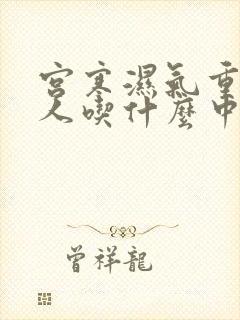 宮寒濕氣重
人喫什麼中
曾祥龍